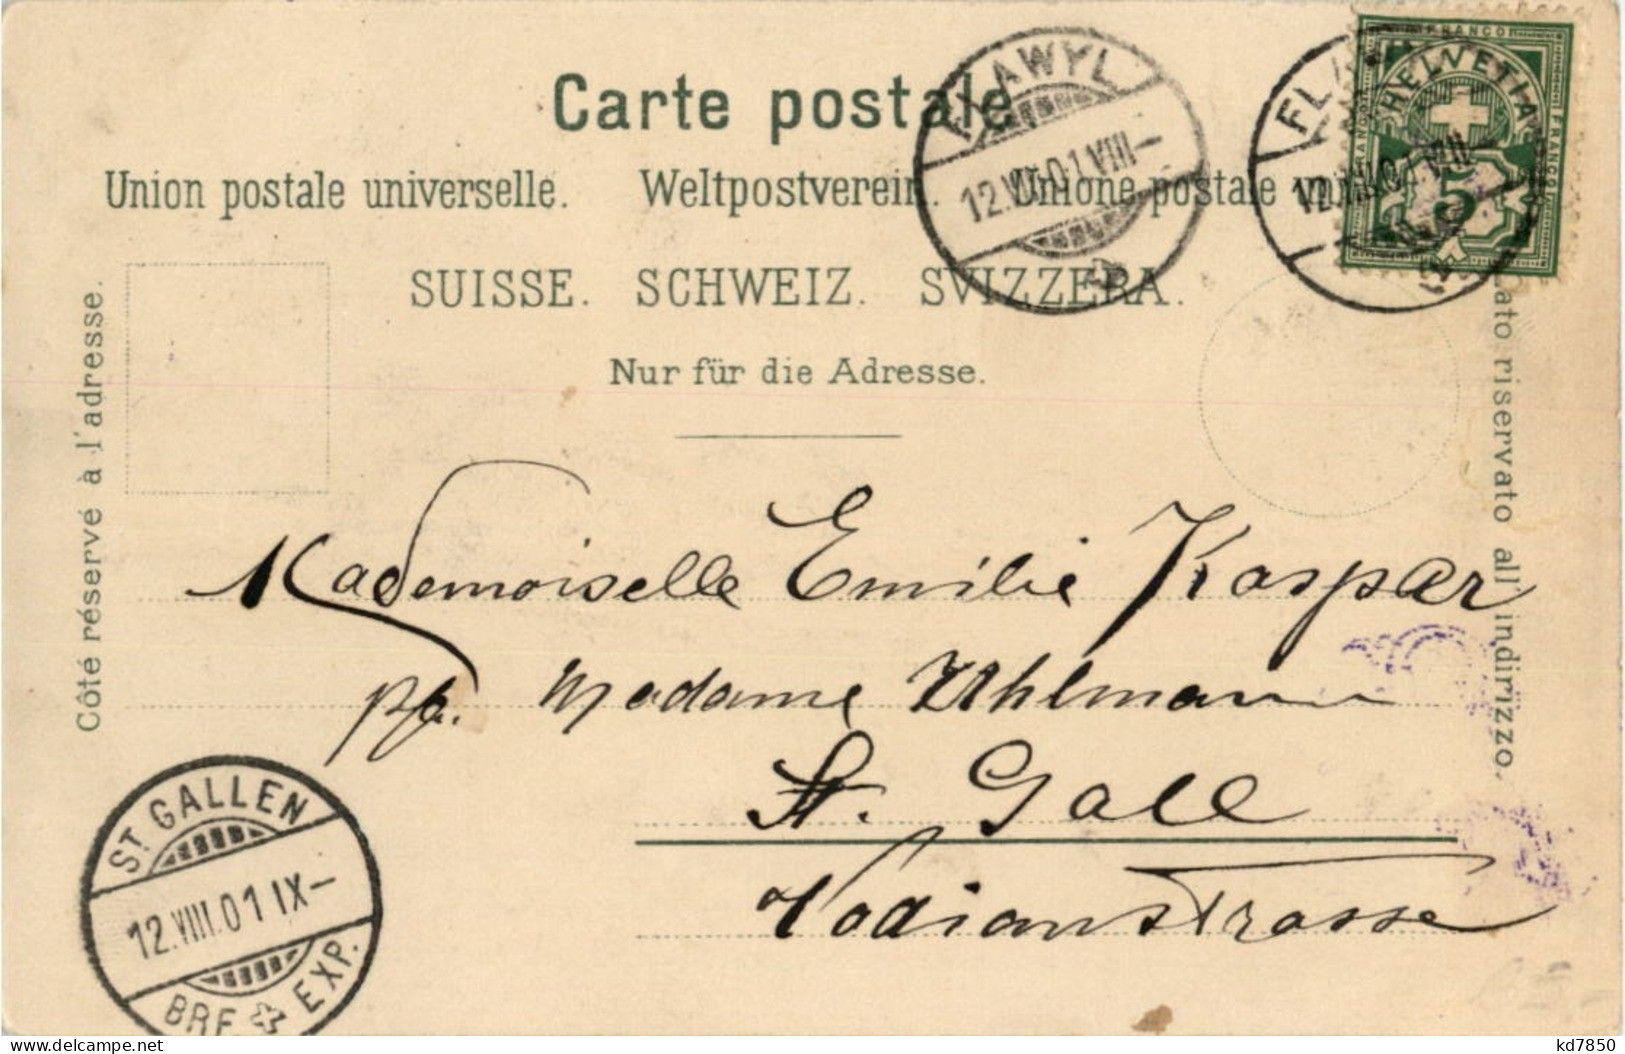 Carte postale
Union postale universelle. Weltpostverein. Unione postale
SUISSE. SCHWEIZ. SVIZZERA.
Nur für die Adresse.
Côté réservé à l'adresse.
Lato riservato all indirizzo.
FRANCO
HELVETIA
FRANCO
5
FLAWYL
12.VIII.01.VIII–
12.VIII.01.VIII–
Mademoiselle Emilie Kaspar
pp. Madame Uhlmann
St. Gall
Vadianstrasse
ST. GALLEN
12.VIII.01 IX–
BRF EXP.
kd7850